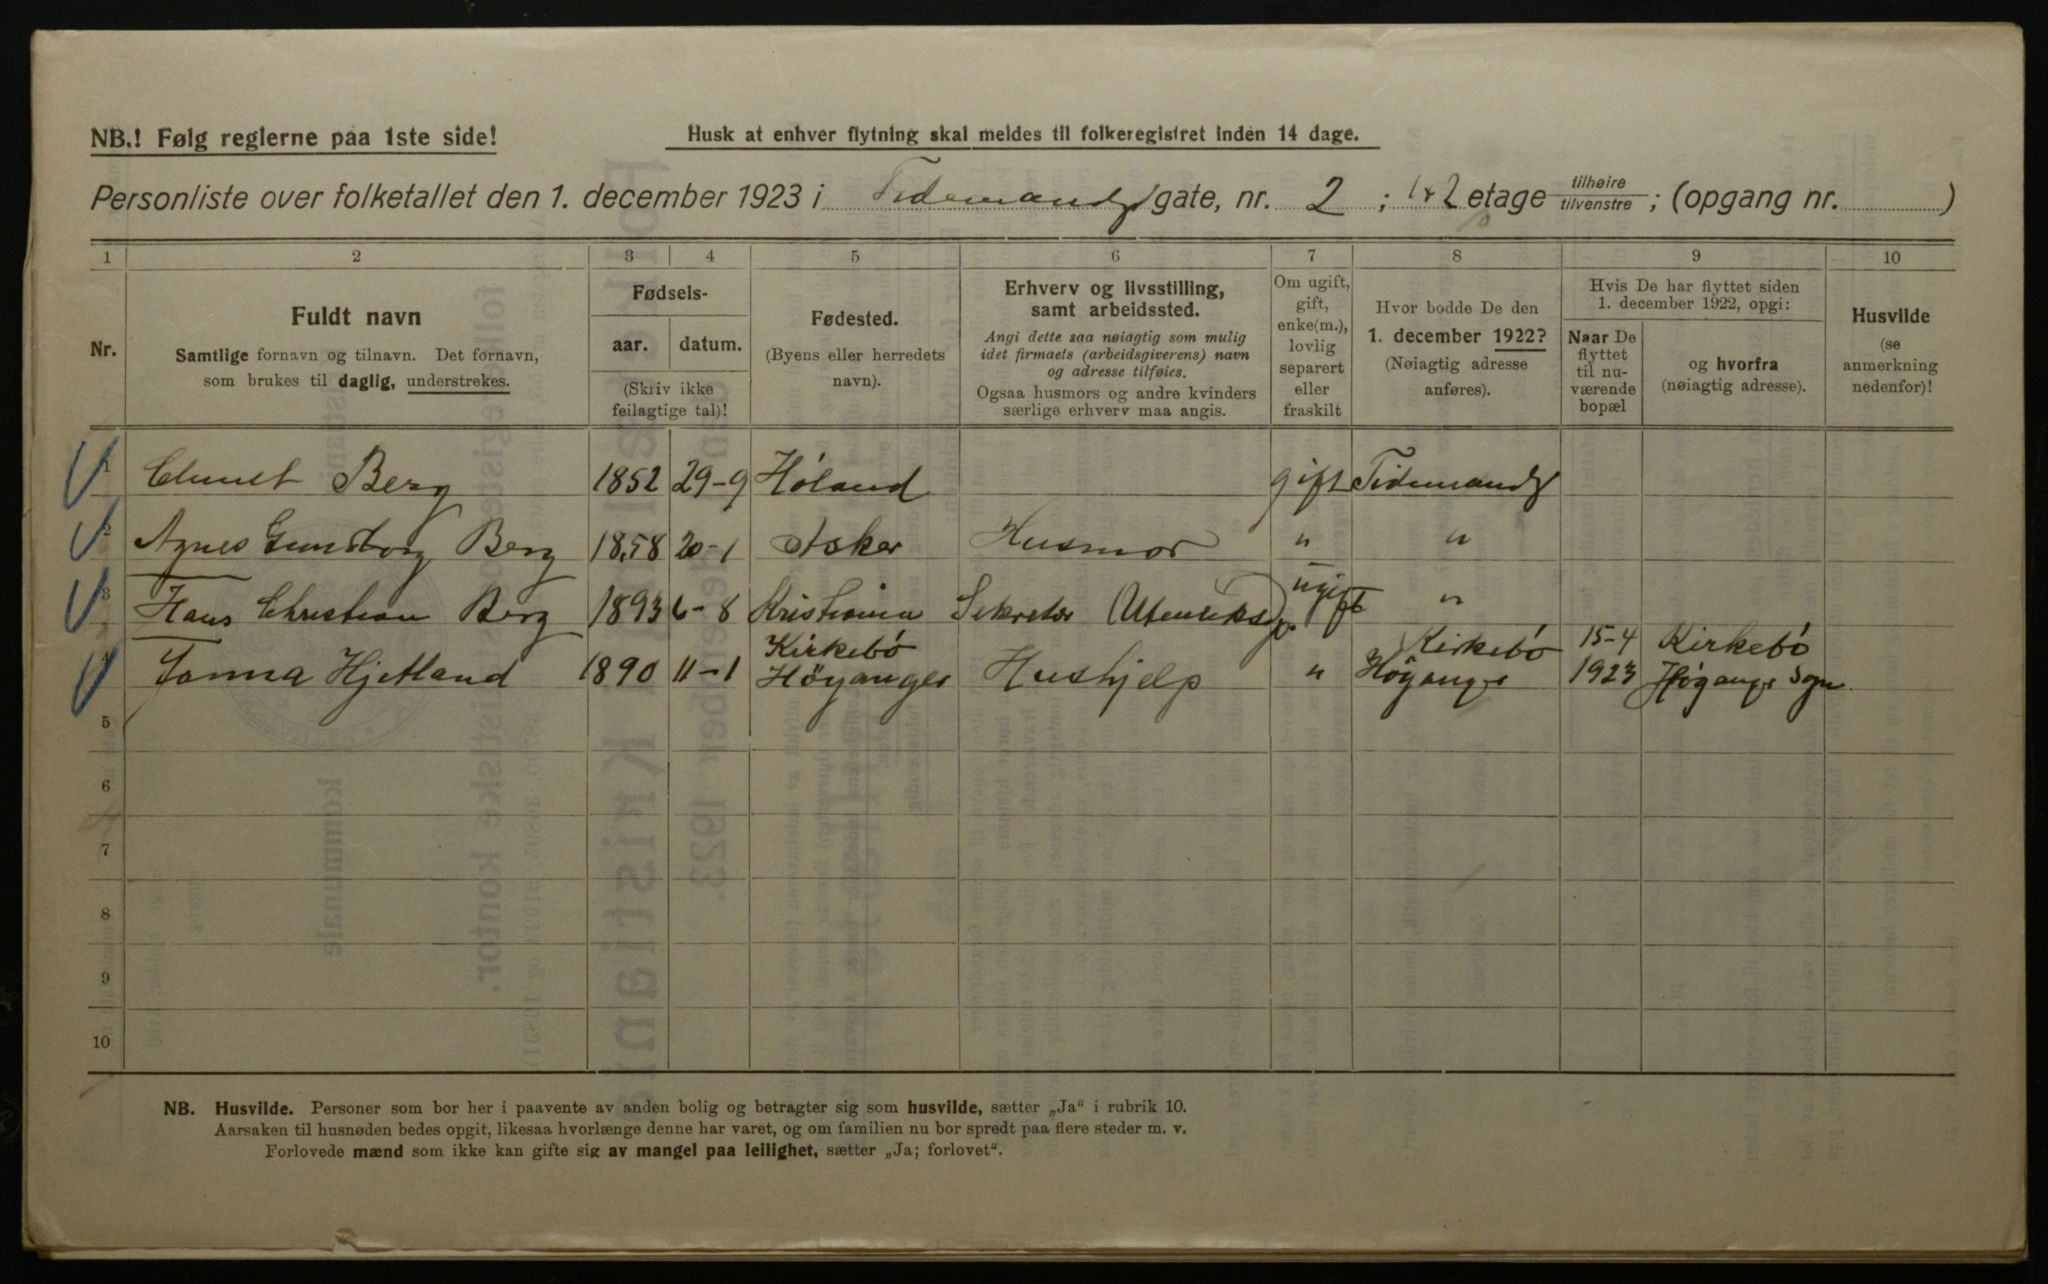 NB.! Følg reglerne paa 1ste side!
Husk at enhver flytning skal meldes til folkeregistret inden 14 dage.
Personliste over folketallet den 1. december 1923 i Tidemands gate, nr. 2 ; 1+2 etage tilhøire tilvenstre ; (opgang nr. )
1 2 3 4 5 6 7 8 9 10
Nr.
Fuldt navn
Samtlige fornavn og tilnavn. Det fornavn,
som brukes til daglig, understrekes.
Fødsels-
aar. datum.
(Skriv ikke
feilagtige tal)!
Fødested.
(Byens eller herredets
navn).
Erhverv og livsstilling,
samt arbeidssted.
Angi dette saa nøiagtig som mulig
idet firmaets (arbeidsgiverens) navn
og adresse tilføies.
Ogsaa husmors og andre kvinders
særlige erhverv maa angis.
Om ugift,
gift,
enke(m.),
lovlig
separert
eller
fraskilt
Hvor bodde De den
1. december 1922?
(Nøiagtig adresse
anføres).
Hvis De har flyttet siden
1. december 1922, opgi:
Naar De
flyttet
til nu-
værende
bopæl
og hvorfra
(nøiagtig adresse).
Husvilde
(se
anmerkning
nedenfor)!
1 Berg 1852 29-9 Høland gift Tidemandsg
2 Agnes Berg 1858 20-1 Asker Husmor " "
3 Hans Christian Berg 1893 6-8 Kristiania Sekretær Utenriksdp. ugift "
4 Hjetland 1890 11-1 Kirkebø Høyanger Hushjelp " Kirkebø Høyanger 15-4 1923 Kirkebø Høyanger Sogn
5
6
7
8
9
10
NB. Husvilde. Personer som bor her i paavente av anden bolig og betragter sig som husvilde, sætter „Ja“ i rubrik 10.
Aarsaken til husnøden bedes opgit, likesaa hvorlænge denne har varet, og om familien nu bor spredt paa flere steder m. v.
Forlovede mænd som ikke kan gifte sig av mangel paa leilighet, sætter „Ja; forlovet“.